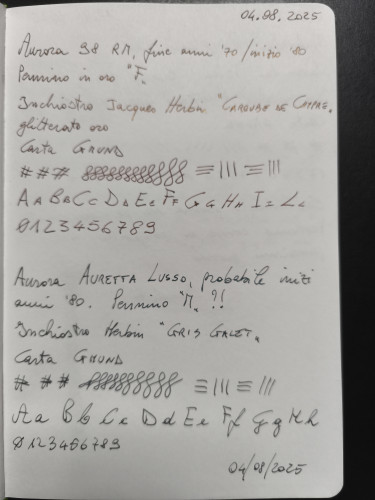 04.08.2025
Aurora 98 RM, fine anni '70/inizio '80
Pennino in oro "F"
Inchiostro Jacques Herbin "CAROUBE DE CHYPRE"
glitterato oro
Carta GMUND
# # #
A a B b C c D d E e F f G g H h I i L l
0 1 2 3 4 5 6 7 8 9
Aurora AURETTA LUSSO, probabile inizi
anni '80. Pennino "M" ?!
Inchiostro Herbin "GRIS GALET"
Carta GMUND
# # #
A a B b C c D d E e F f G g H h
0 1 2 3 4 5 6 7 8 9
04/08/2025